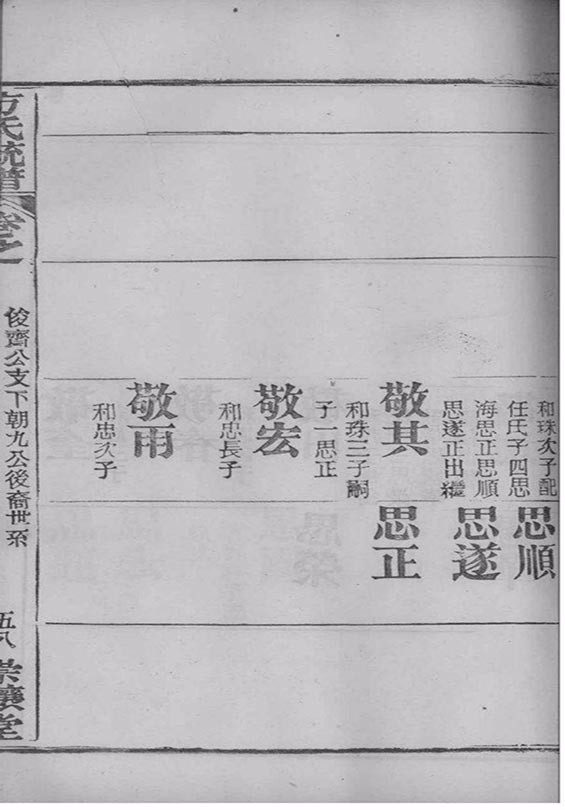 和珠次子配
任氏子四思
海思正思順
思遂正出繼
思順
思遂
敬其
和珠三子嗣
子一思正
思正
敬宏
和忠長子
敬甭
和忠次子
方氏統譜
卷之
俊齋公支下朝九公後裔世系
五八
崇讓堂